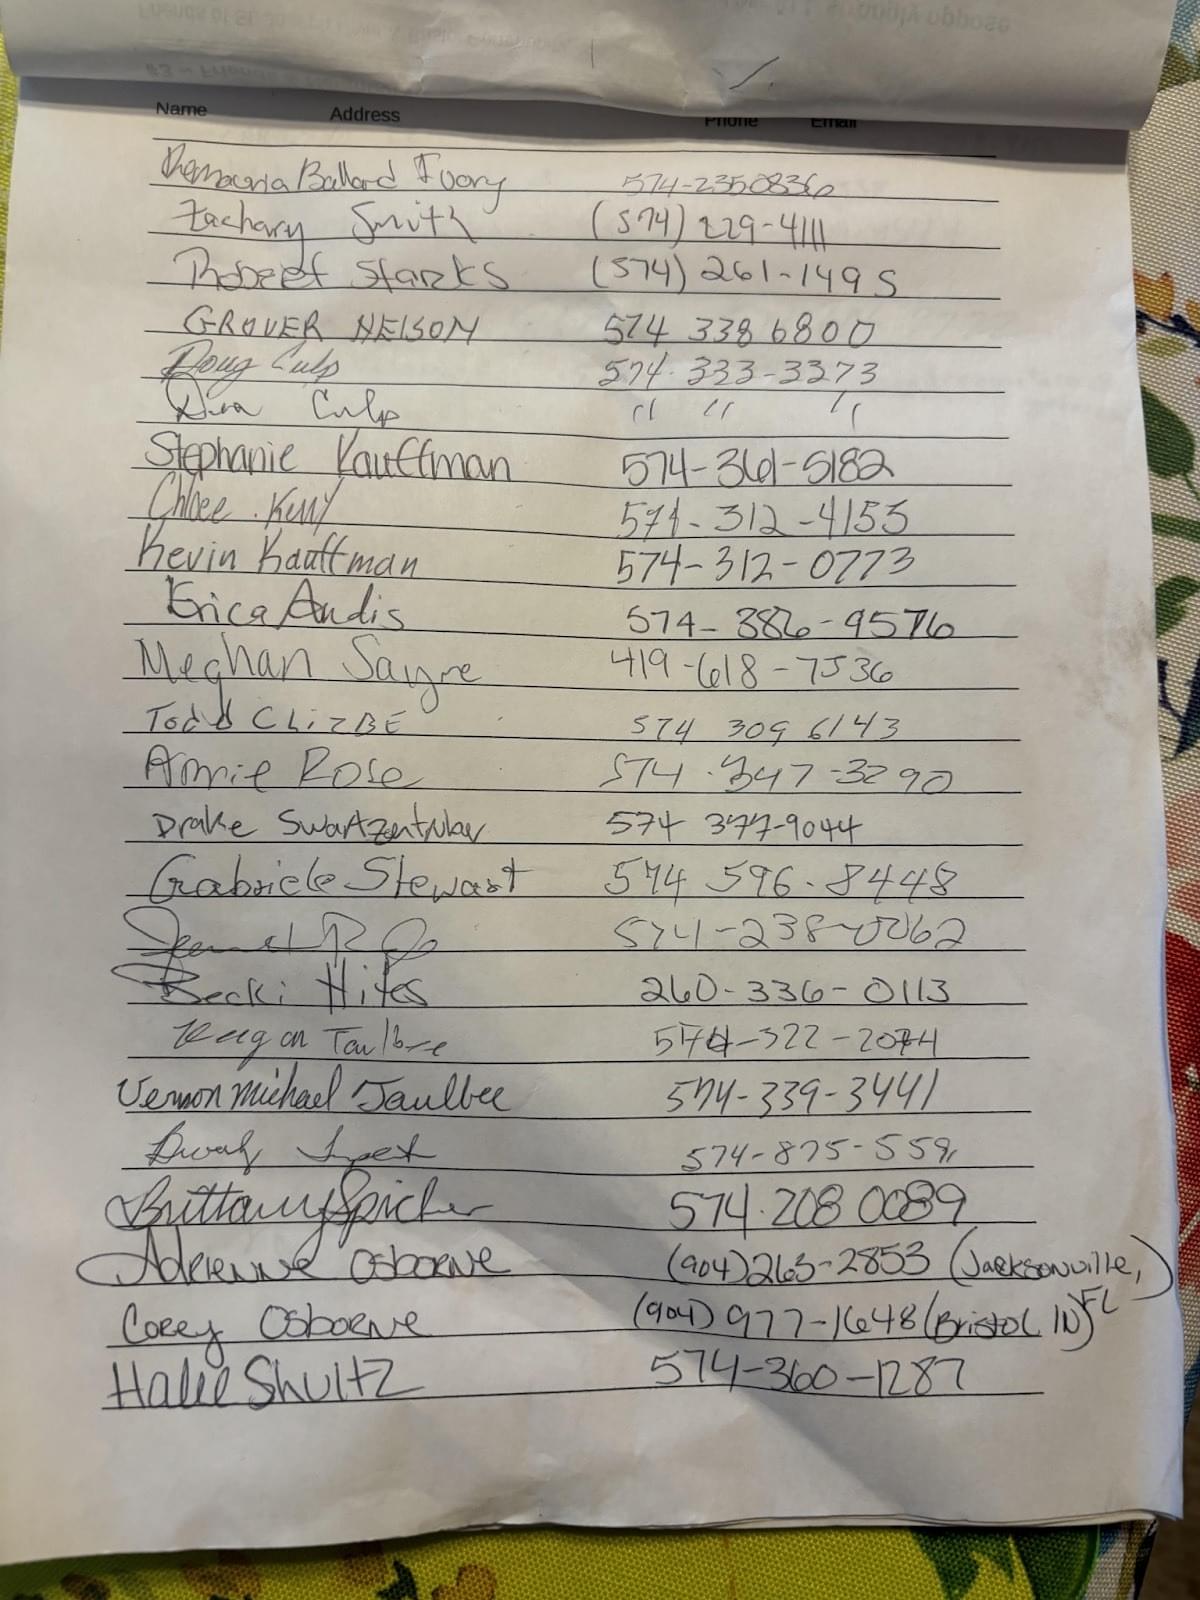 strongly oppose
Friends of St. Jo
Name Address Phone Email
Ballard Ivory 574-2350836
Zachary Smith (574) 229-4111
Robert Starks (574) 261-1495
GROVER NELSON 574 338 6800
Doug Culp 574-333-3373
Culp " " "
Stephanie Kauffman 574-361-5182
Chloe Kelly 574-312-4153
Kevin Kauffman 574-312-0773
Erica Andis 574-386-9576
Meghan Sayre 419-618-7536
Todd CLIZBE 574 309 6143
Annie Rose 574-347-3290
Drake Swartzentruber 574 377-9044
Gabriele Stewart 574 596-8448
574-238-0062
Becki Hites 260-336-0113
Taulbee 574-322-2044
Vernon Michael Taulbee 574-339-3441
574-875-559
Brittany Spicher 574-208 0089
Adrienne Osborne (904) 263-2853 (Jacksonville, FL)
Corey Osborne (904) 977-1648 (Bristol IN)
Halie Shultz 574-360-1287